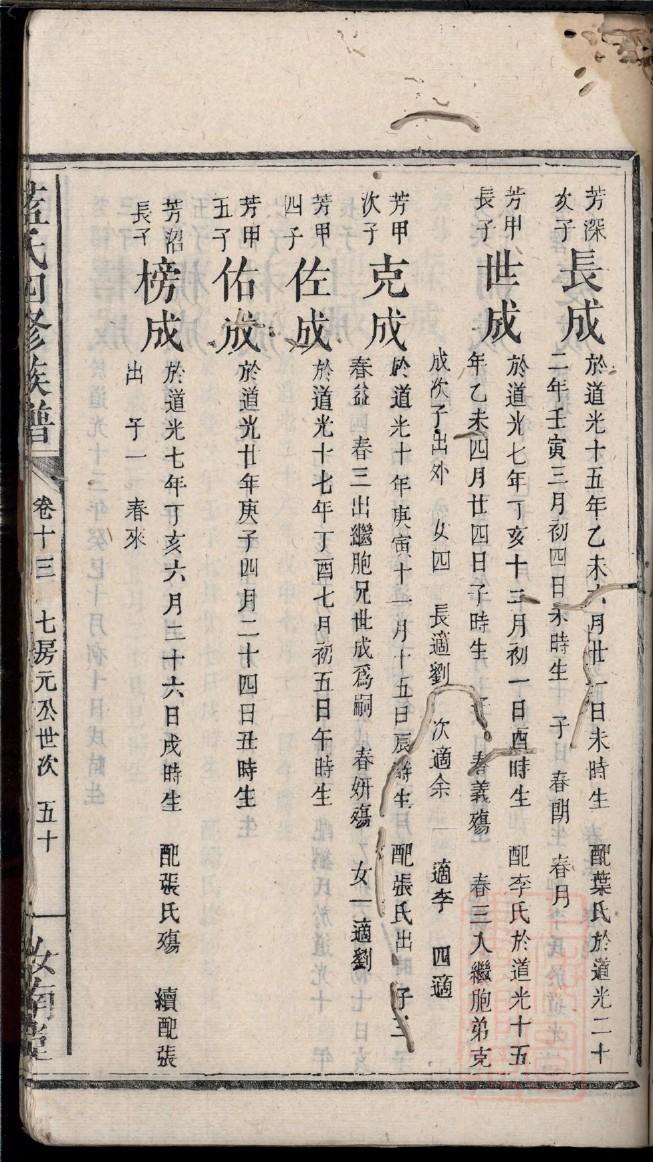 芳深
次子
長成
於道光十五年乙未六月廿一日未時生 配葉氏於道光二十
二年壬寅三月初四日未時生 子 春朗 春月
芳甲
長子
世成
於道光七年丁亥十三月初一日酉時生 配李氏於道光十五
年乙未四月廿四日子時生 春義殤 春三入繼胞弟克
成次子出外 女四 長適劉 次適余 適李 四適
芳甲
次子
克成
於道光十年庚寅十一月十五日辰時生 配張氏出 子三
春益 春三出繼胞兄世成爲嗣 春妍殤 女一適劉
芳甲
四子
佐成
於道光十七年丁酉七月初五日午時生
芳甲
五子
佑成
於道光廿年庚子四月二十四日丑時生
芳沼
長子
榜成
於道光七年丁亥六月二十六日戌時生 配張氏殤 續配張
出 子一 春來
藍氏四修族譜
卷十三 七房元公世次 五十
汝南堂